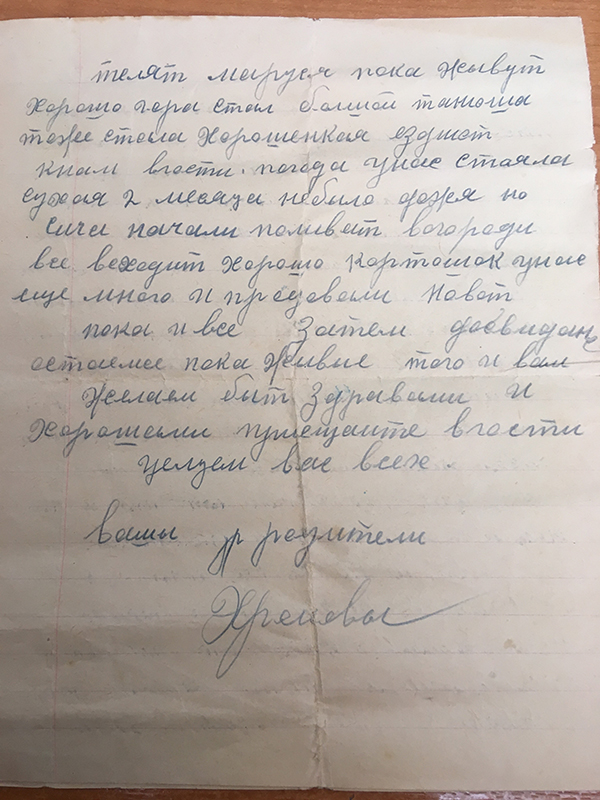 телят маруся пока жывут
хорошо гора стал болшой танюша
тоже стала хорошенкая ездиют
кнам вгости. погода унас стояла
сухая 2 месяца небыло дожя но
начали поливат вогороди
все веходит хорошо картошок унас
еще много и продовали
пока и все затем досвидан
остаемсе пока живые того и вам
желаем быт здравами и
хорошами приещаите вгости
целуем вас всех.
вашы родители